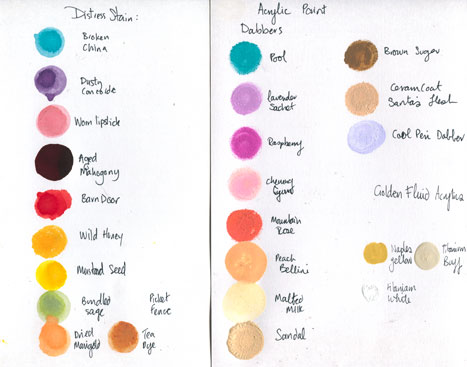 Distress Stain:
Broken
China
Dusty
Concorde
Worn lipstick
Aged
Mahogany
Barn Door
Wild Honey
Mustard Seed
Bundled
sage
Picket
Fence
Dried
Marigold
Tea
Dye
Acrylic Paint
Dabbers
Pool
lavender
Sachet
Raspberry
Chewing
Gum
Mountain
Rose
Peach
Bellini
Malted
Milk
Sandal
Brown Sugar
CeramCoat
Santa's Flesh
Cool Peri Dabber
Golden Fluid Acrylics
Naples
yellow
Titanium
Buff
titanium
White